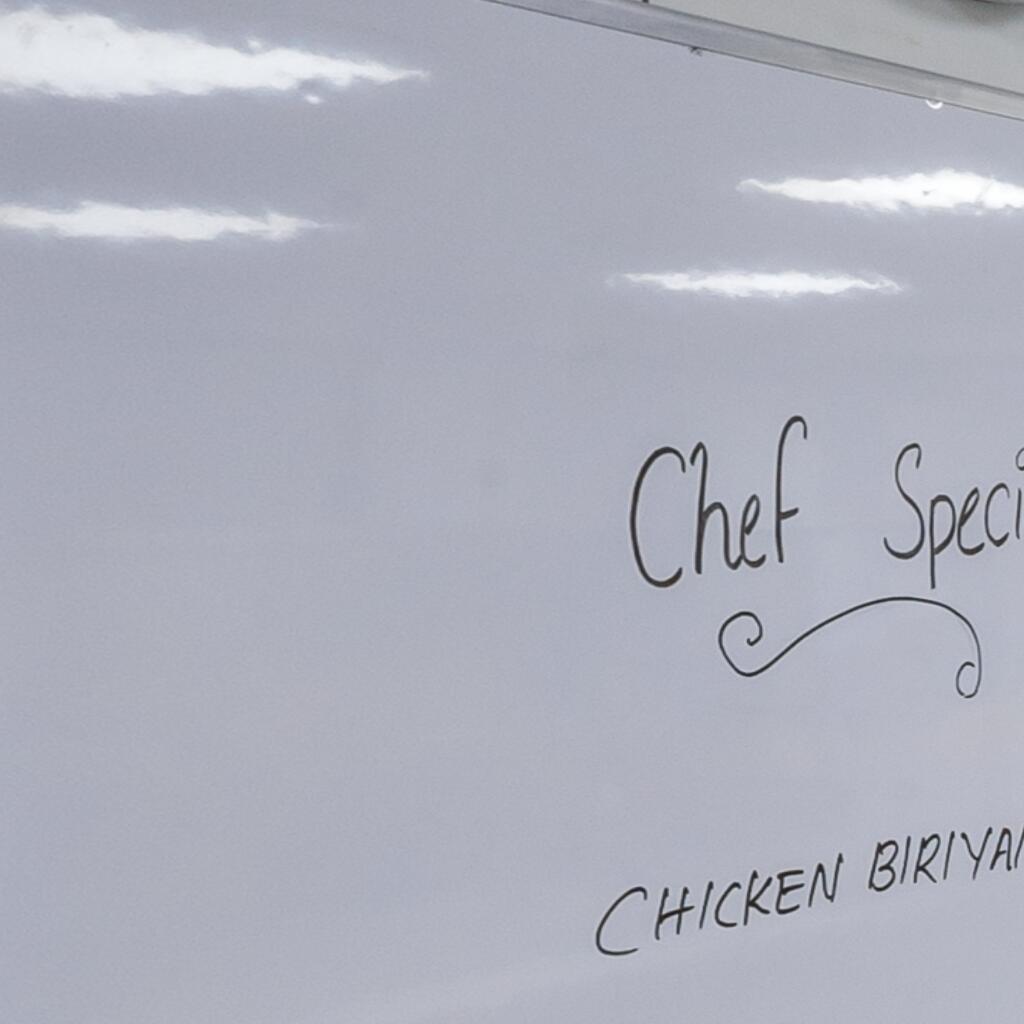 Chef Speci
CHICKEN BIRIYAN